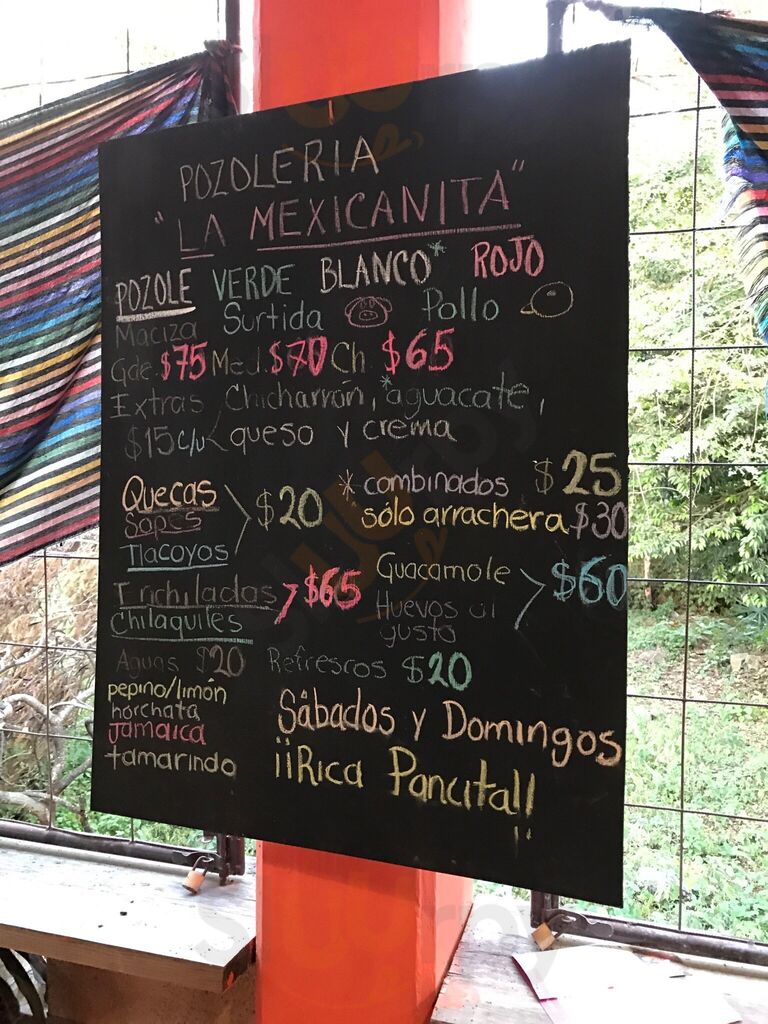 POZOLERIA
"LA MEXICANITA"
POZOLE VERDE BLANCO* ROJO
Maciza Surtida Pollo
Gde. $75 Med. $70 Ch $65
Extras Chicharrón, *aguacate,
$15 c/u queso y crema
Quecas
Sopes
Tlacoyos
$20
*combinados $25
sólo arrachera $30
Enchiladas
Chilaquiles
$65
Guacamole
Huevos al
gusto
$60
Aguas $20 Refrescos $20
pepino/limón
horchata
Jamaica
tamarindo
Sábados y Domingos
¡¡Rica Pancita!!